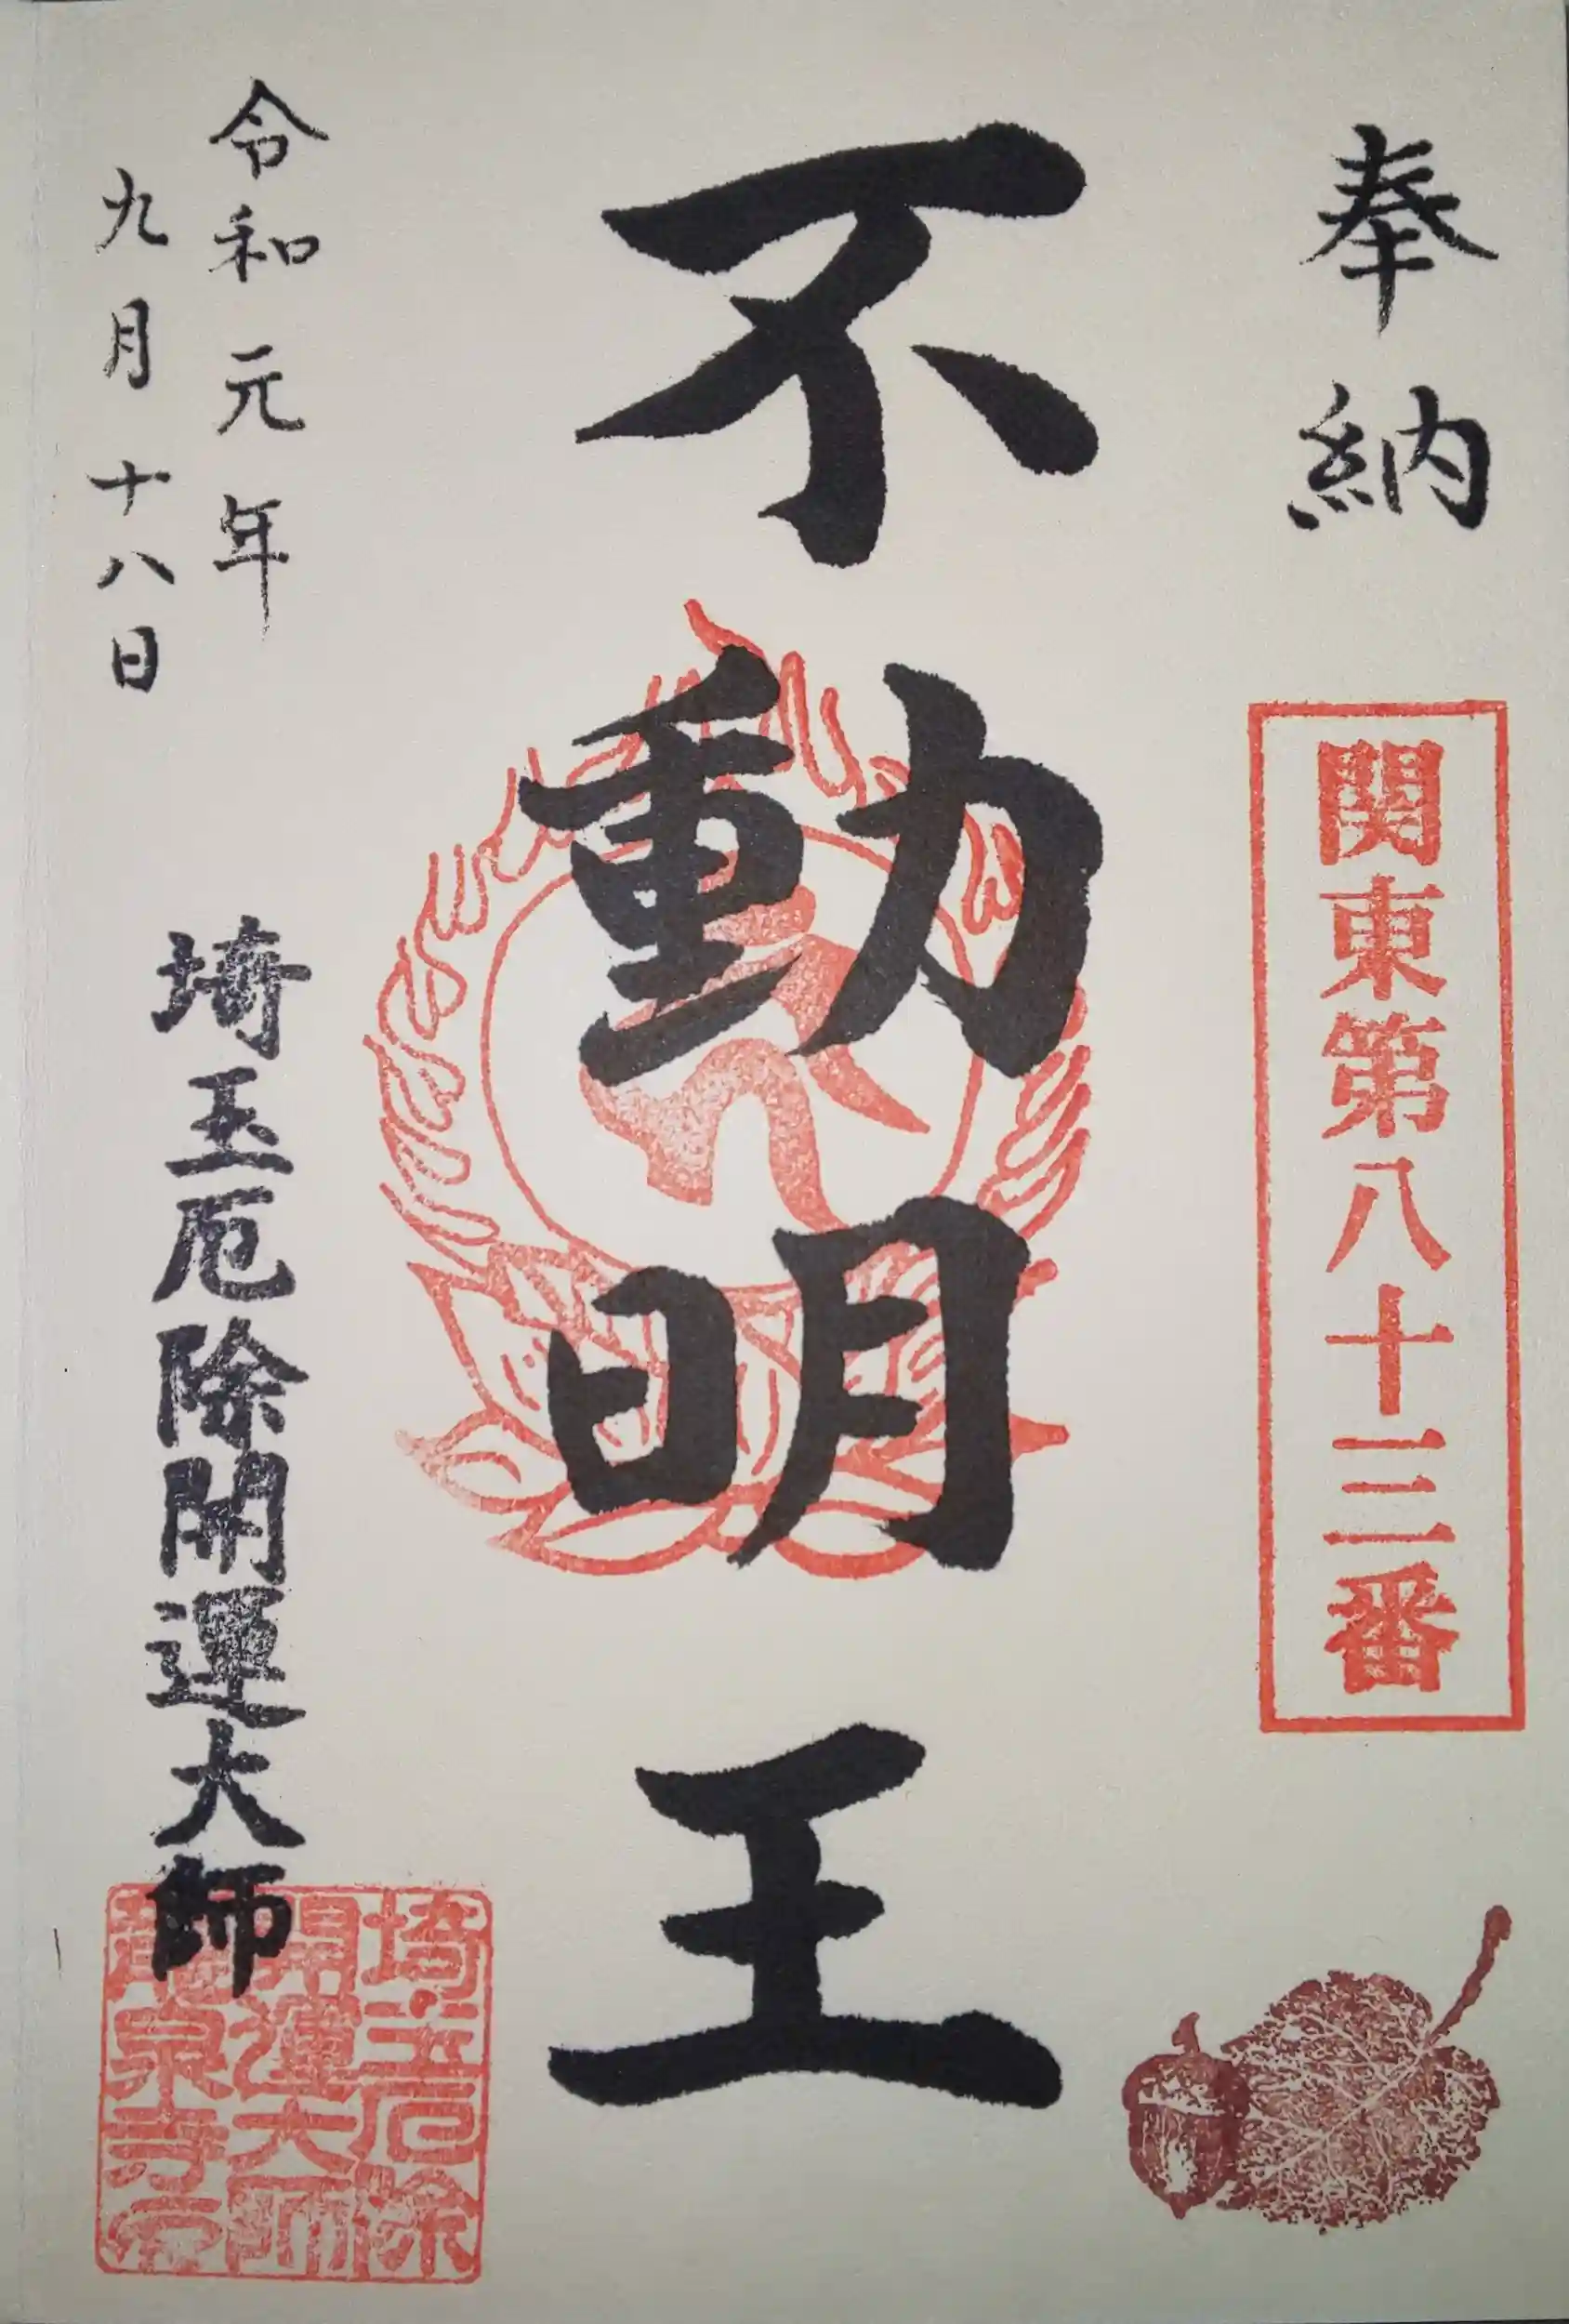 奉納
関東第八十三番
不動明王
令和元年
九月十八日
埼玉厄除開運大師
埼玉厄除
開運大師
龍泉寺印